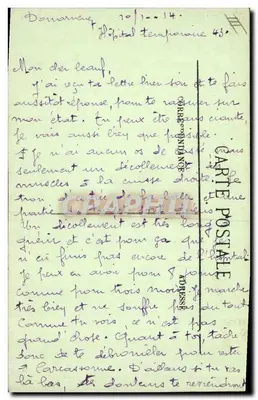 10/1 - 14.
Hôpital temporaire 43.
III
Mon cher beauf,
J'ai reçu ta lettre hier soir et te fais
aussitôt réponse, pour te rassurer sur
mon état. Tu peux être sans crainte
Je vais aussi bien que possible.
Je n'ai aucun os de cassé
seulement un décollement de
muscles à la cuisse droite.
partie
Un décollement est très long
guérir et c'est pour ça que
n'ai fini pas encore de l'hôpital
Je peux en avoir pour 8 jours
comme pour trois mois Je marche
très bien et ne souffre pas du tout
Comme tu vois, ce n'est pas
grand'chose. Quant à toi, tâche
donc de te débrouiller pour rester
à Carcassonne. D'ailleurs si tu vas
là-bas, les douleurs te reviendront
CORRESPONDANCE
CARTE POSTALE
ADRESSE
CPAPHIL